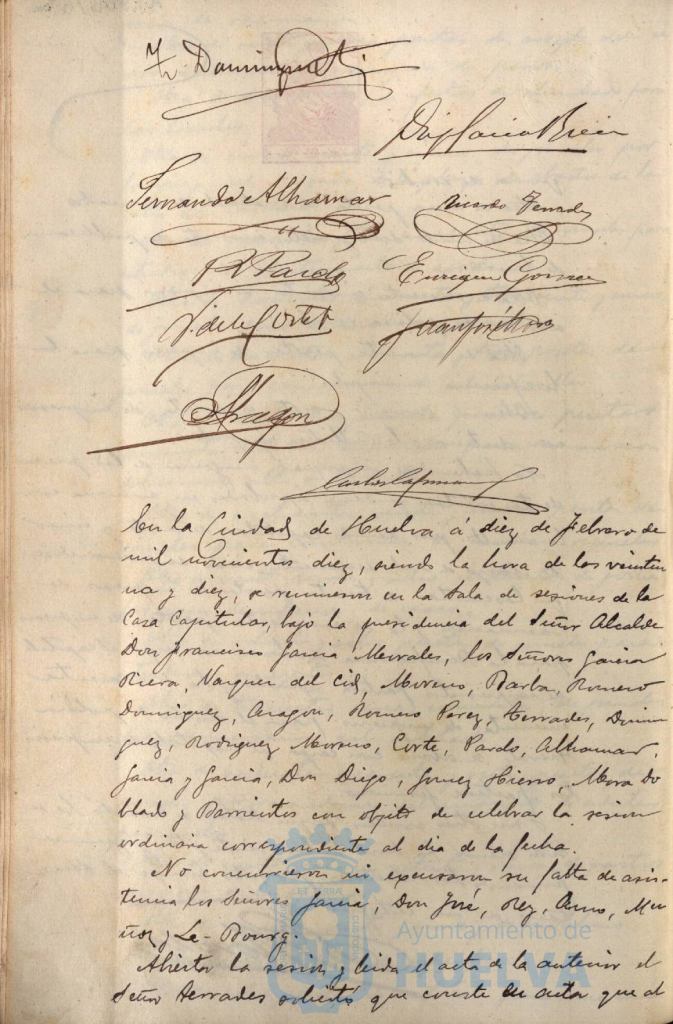 Fernando Alhamar
Ricardo Terrades
R Pardo
Enrique Gomez
V. de la Corte
Juan José Mora
Aragon
En la Ciudad de Huelva á diez de Febrero de
mil novecientos diez, siendo la hora de las veintiu
na y diez, se reunieron en la Sala de sesiones de la
Casa Capitular, bajo la presidencia del Señor Alcalde
Don Francisco Garcia Morales, los Señores Garcia
Riera, Vazquez del Cid, Moreno, Barba, Romero
Dominguez, Aragon, Romero Perez, Terrades, Domin
guez, Rodriguez Moreno, Corte, Pardo, Alhamar,
Garcia y Garcia, Don Diego, Gomez Hierro, Mora Do
blado y Barrientos con objeto de celebrar la sesion
ordinaria correspondiente al dia de la fecha.
No concurrieron ni excusaron su falta de asis-
tencia los Señores Garcia, Don José, Rey, Mu
ñoz y Le-Bourg.
Abierta la sesion y leida el acta de la anterior el
Señor Terrades solicitó que conste en acta que al
Ayuntamiento de
HUELVA